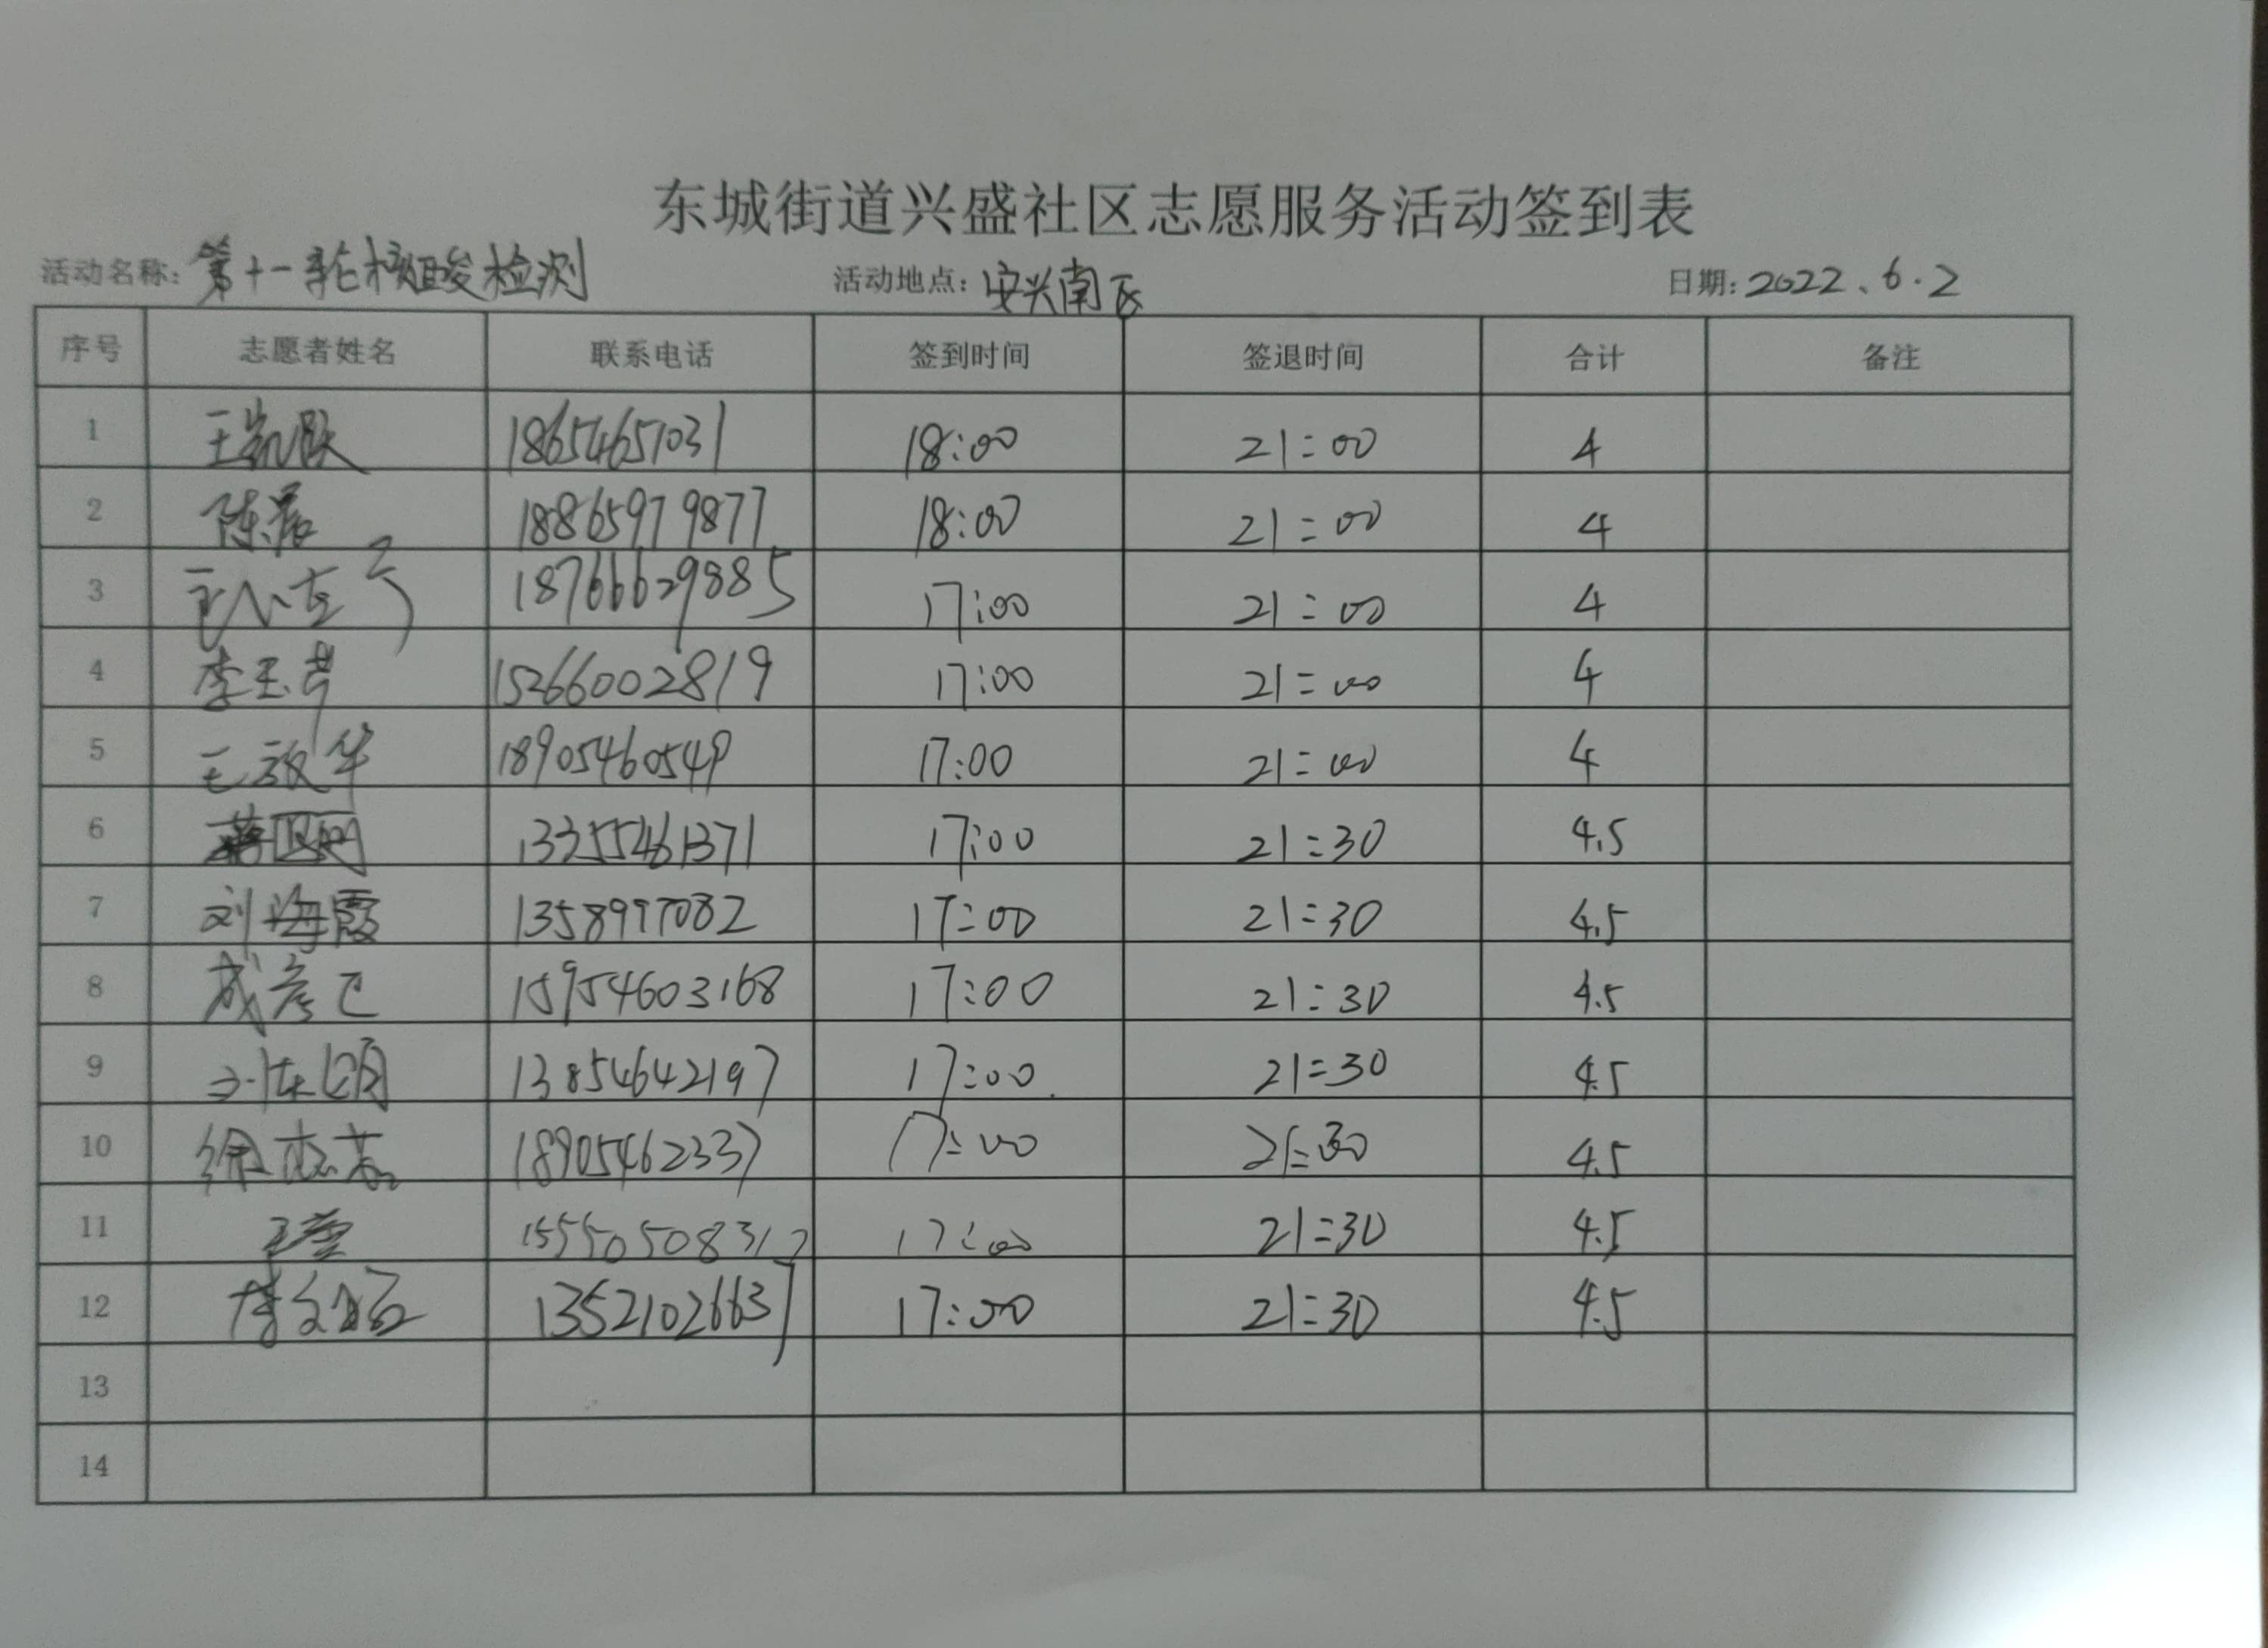 东城街道兴盛社区志愿服务活动签到表
活动名称: 第十一轮核酸检测 活动地点: 安兴南区 日期: 2022.6.2
序号 志愿者姓名 联系电话 签到时间 签退时间 合计 备注
1 18654657031 18:00 21:00 4
2 陈磊 18865979877 18:00 21:00 4
3 18766629885 17:00 21:00 4
4 李玉芹 15266002819 17:00 21:00 4
5 王放华 18905460549 17:00 21:00 4
6 13355461371 17:00 21:30 4.5
7 刘海霞 1358997082 17:00 21:30 4.5
8 成彦已 15954603168 17:00 21:30 4.5
9 13854642197 17:00 21:30 4.5
10 徐 18905462337 17:00 21:30 4.5
11 15550508317 17:00 21:30 4.5
12 13521026637 17:00 21:30 4.5
13
14